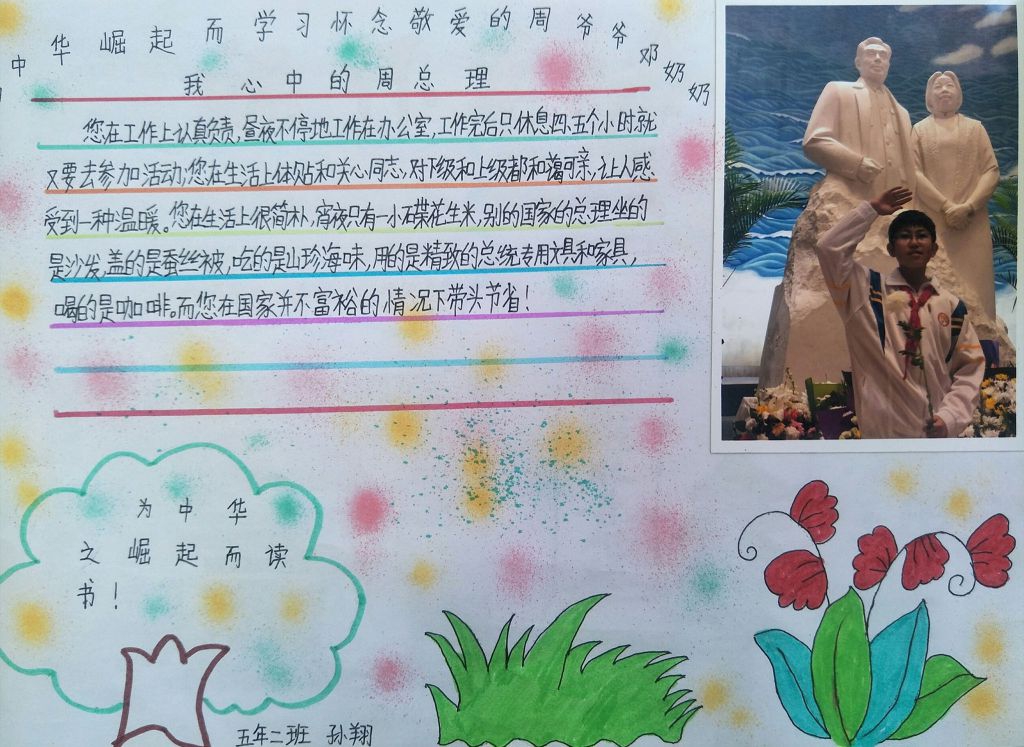 中华崛起而学习怀念敬爱的周爷爷邓奶奶
我心中的周总理
您在工作上认真负责,昼夜不停地工作在办公室,工作完后只休息四、五个小时就
又要去参加活动,您在生活上体贴和关心同志,对下级和上级都和蔼可亲,让人感
受到一种温暖。您在生活上很简朴,宵夜只有一小碟花生米,别的国家的总理坐的
是沙发,盖的是蚕丝被,吃的是山珍海味,用的是精致的总统专用文具和家具,
喝的是咖啡。而您在国家并不富裕的情况下带头节省!
为中华
之崛起而读
书!
五年二班 孙翔